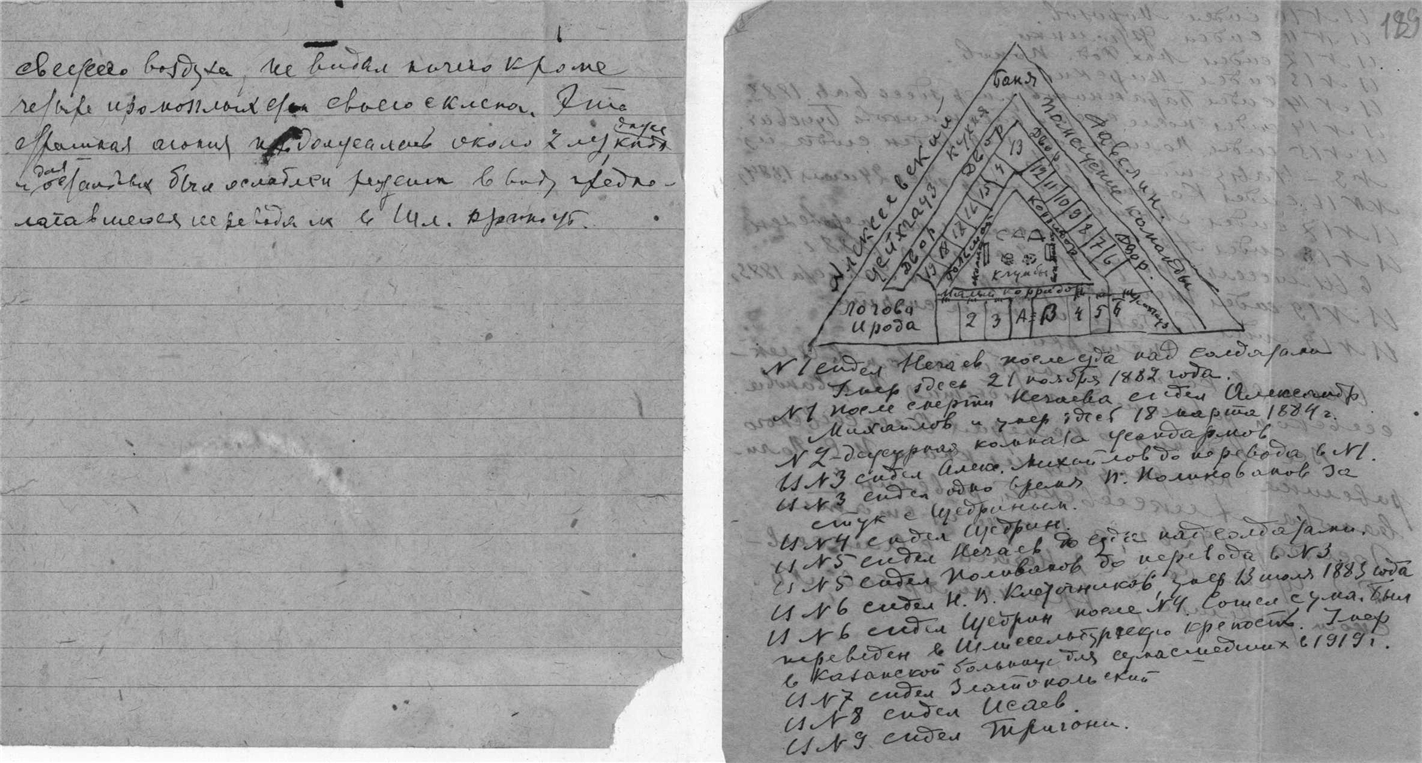 свежего воздуха, не видал ничего кроме
четырех промозглых стен своего склепа. Эта
страшная агония продолжалась около 2 лет
и для остальных была ослаблен режим в виду предпо-
лагавшегося перевода их в Шл. крепость.
189
Баня
Алексеевский
Равелин.
Цейхгауз
Кухня
Помещение команды
Двор
Двор
Двор
Двор.
13
12
11
10
9
8
7
6
19
18
17
16
15
14
Большой
Коридор
Клумбы
Малый корридор
Логова
Ирода
2
3
А=В
4
5
6
№1 сидел Нечаев после суда над солдатами
Умер здесь 21 ноября 1882 года.
№1 после смерти Нечаева сидел Александр
Михайлов и умер здесь 18 марта 1884 г.
№2 – дежурная комната жандармов
В №3 сидел Алекс. Михайлов до перевода в №1.
В №3 сидел одно время П. Поливанов за
стук с Щедриным.
В №4 сидел Щедрин.
В №5 сидел Нечаев до суда над солдатами.
В №5 сидел Поливанов до перевода в №3
В №6 сидел Н. В. Клеточников, умер 13 июля 1883 года
В №6 сидел Щедрин после №4. Сошел с ума. Был
переведен в Шлиссельбургскую крепость. Умер
в Казанской больнице для сумасшедших в 1919 г.
В №7 сидел Златопольский
В №8 сидел Исаев.
В №9 сидел Тригони.